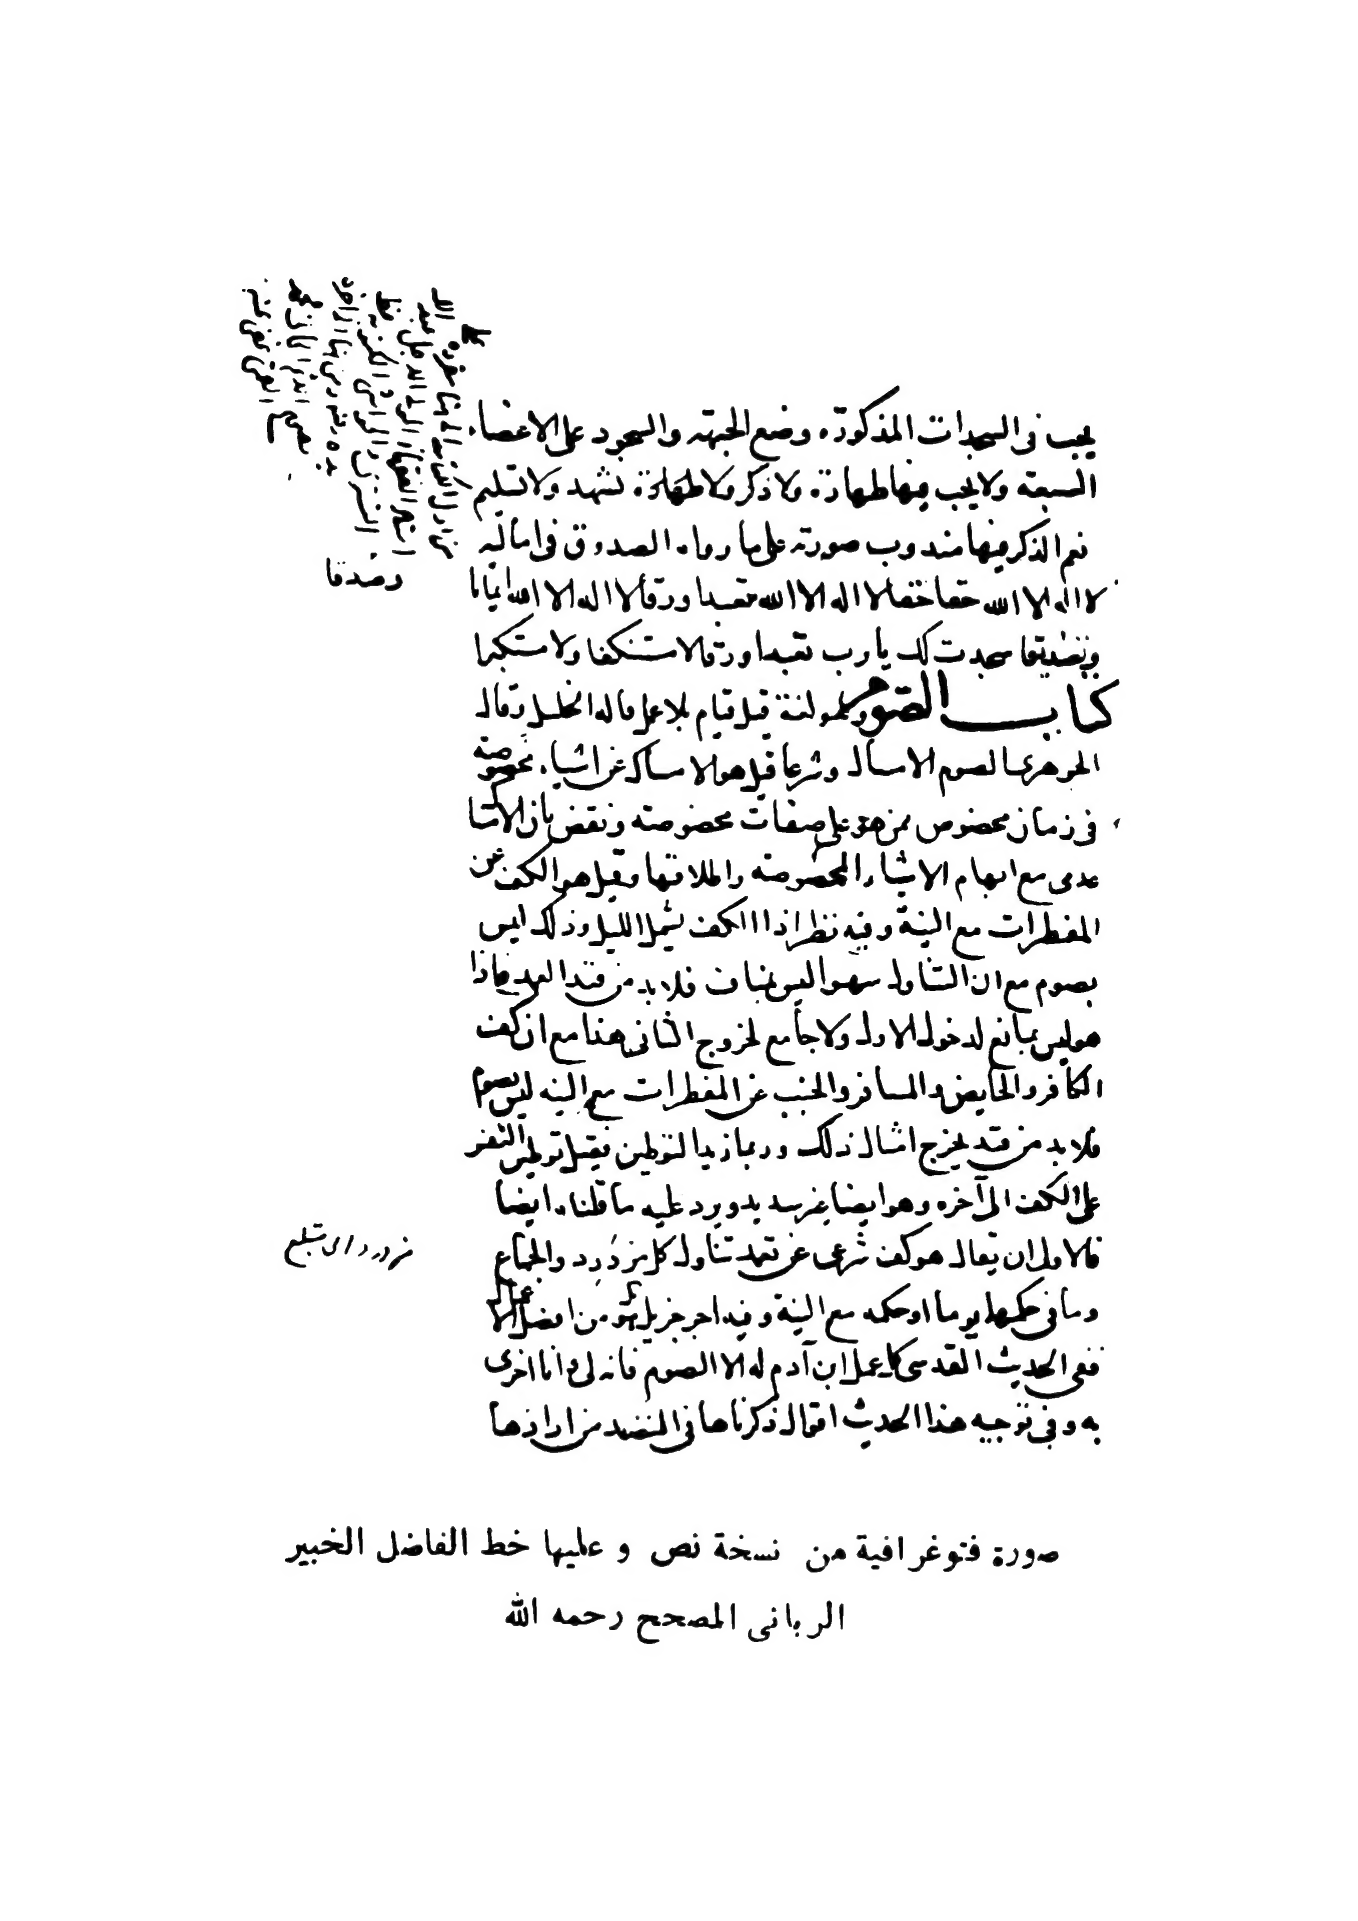 يجب فى السجدات المذكورة وضع الجبهة والسجود على الاعضاء
السبعة ولا يجب فيها طهارة ولا ذكر ولا طهارة تشهد ولا تسليم
نعم الذكر فيها مندوب صورته على ما رواه الصدوق فى اماليه
لا اله الا الله حقا حقا لا اله الا الله تعبدا ورقا لا اله الا الله ايمانا
وتصديقا سجدت لك يا رب تعبدا ورقا لا مستنكفا ولا مستكبرا
وصدقا
كتاب الصوم وهو لغة قيل قيام بلا عمل قاله الخليل وقال
الجوهرى الصوم الامساك وشرعا قيل هو الامساك عن اشياء مخصوصة
فى زمان مخصوص ممن هو على صفات مخصوصة ونقض بان الامساك
عدمى مع ابهام الاشياء المخصوصة واطلاقها وقيل هو الكف عن
المفطرات مع النية وفيه نظر اذ الكف يشمل الليل وذلك ليس
بصوم مع ان التناول سهوا ليس بمناف فلا بد من قيد العمد فاذا
هو ليس بمانع لدخول الاول ولا جامع لخروج الثانى هذا مع ان كف
الكافر والحايض والمسافر والجنب عن المفطرات مع النية ليس بصوم
فلا بد من قيد يخرج امثال ذلك وربما زيد التوطين فقيل توطين النفس
على الكف الى آخره وهو ايضا غير سديد ويرد عليه ما قلناه ايضا
فالاولى ان يقال هو كف شرعى عن تعمد تناول كل مزدرد والجماع
مزدرد اى مبتلع
وما فى حكمها يوما او حكمه مع النية وفيه اجر جزيل هو من افضل الاعمال
ففى الحديث القدسى كل عمل ابن آدم له الا الصوم فانه لى وانا اجزى
به وفى توجيه هذا الحديث اقوال ذكرناها فى المنضد من ارادها
صورة فتوغرافية من نسخة نص و عليها خط الفاضل الخبير
الربانى المصحح رحمه الله